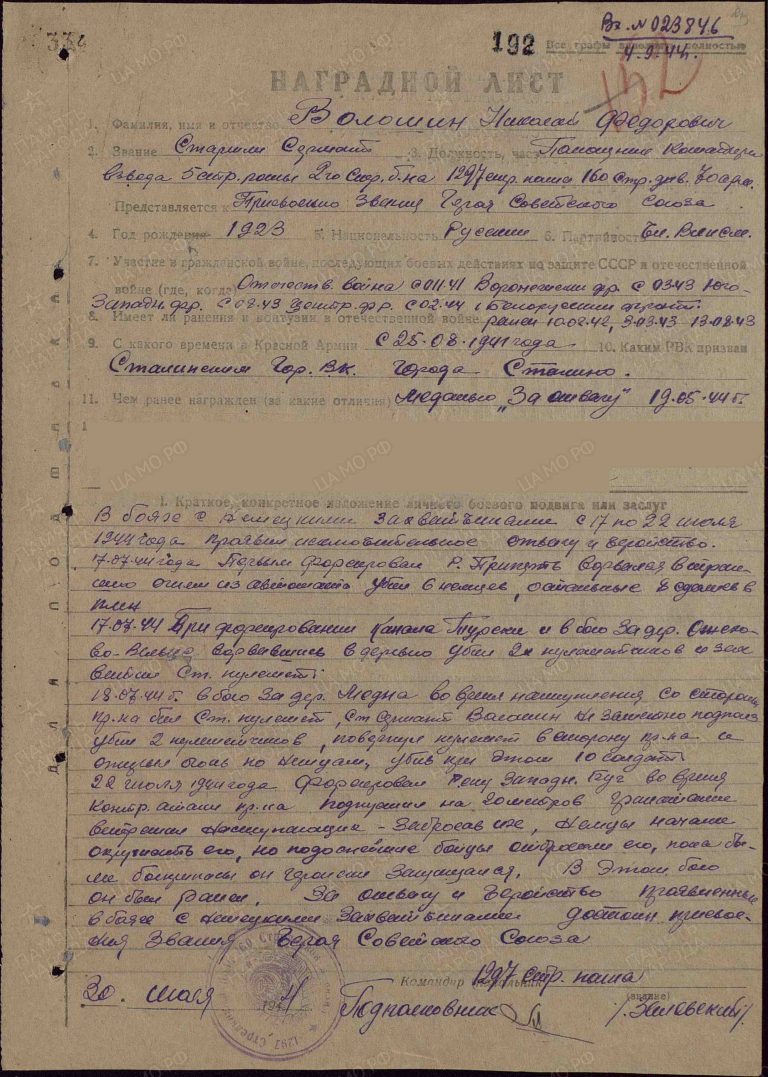 334
192
Вх. N 023846
Все графы заполнять полностью
4.9.44г.
НАГРАДНОЙ ЛИСТ
1. Фамилия, имя и отчество Волошин Николай Федорович
2. Звание Старший Сержант 3. Должность, часть Помощник Командира
взвода 5 стр. роты 2го Стр. б-на 1297 стр. полка 160 Стр. див. 70 арм.
Представляется к Присвоению Звания Героя Советского Союза
4. Год рождения 1923 5. Национальность Русский 6. Партийность Чл. ВЛКСМ.
7. Участие в гражданской войне, последующих боевых действиях по защите СССР и отечественной
войне (где, когда) Отечеств. война с 011.41 Воронежский фр. с 03.43 Юго-
Западн. фр. с 08.43 Центр. фр. с 02.44 1 Белорусский фронт.
8. Имеет ли ранения и контузии в отечественной войне ранен 10.02.42, 3.03.43 13.08.43
9. С какого времени в Красной Армии с 25.08.1941 года 10. Каким РВК призван
Сталинским Гор. В.К. города Сталино.
11. Чем ранее награжден (за какие отличия) Медалью „За отвагу" 19.05.44 г.
1
I. Краткое, конкретное изложение личного боевого подвига или заслуг
В боях с Немецкими Захватчиками с 17 по 22 июля
1944 года проявил исключительное отвагу и геройство.
17.07.44 года Первым форсировал Р. Припять ворвался в
огнем из автомата убил 6 немцев, остальные сдались в
плен
17.07.44 При форсировании Канала Турский и в бою За дер.
ворвавшись в деревню убил 2х пулеметчиков и зах
ватил Ст. пулемет.
18.07.44 г. в бою За дер. Медна во время наступления со стороны
пр-ка бил Ст. пулемет, Ст. Сержант Волошин Незаметно подполз
убил 2 пулеметчиков, повернув пулемет в сторону пр-ка и
открыл огонь по немцам, убив при этом 10 солдат.
22 июля 1944 года форсировал Реку Западн. Буг во время
контр. атаки пр-ка подпустил на 20 метров гранатами
встретил наступающие - Забросав их, Немцы начали
окружать его, но подоспевшие бойцы отбросали его, пока бы-
ли бойцы он геройски Защищался. В Этом бою
он был ранен. За отвагу и Геройство проявленные
в боях с немецкими Захватчиками достоин присвое-
ния Звания Героя Советского Союза
Командир 1297 стр. полка
30. июля 1944 Подполковник (звание) /Зиловский/
1297 Стрелковый
Для подшивки
ЦАМО РФ